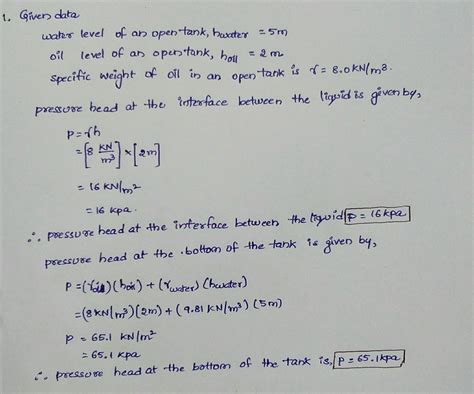 1. Given data
water level of an open tank, hwater = 5m
oil level of an open tank, hoil = 2m
specific weight of oil in an open tank is γ = 8.0 KN/m³.
pressure head at the interface between the liquid is given by,
P = γh
= [8 KN/m³] × [2m]
= 16 KN/m²
= 16 kpa.
∴ pressure head at the interface between the liquid P = 16 kpa
pressure head at the bottom of the tank is given by,
P = (γoil)(hoil) + (γwater)(hwater)
= (8 KN/m³)(2m) + (9.81 KN/m³)(5m)
P = 65.1 KN/m²
= 65.1 kpa
∴ pressure head at the bottom of the tank is, P = 65.1 kpa